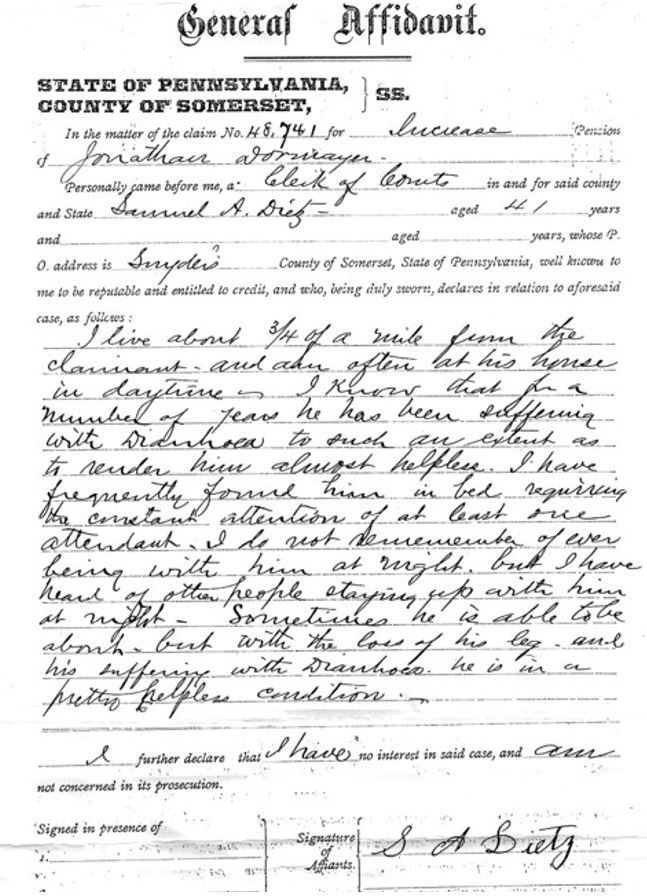 General Affidavit.
STATE OF PENNSYLVANIA,
COUNTY OF SOMERSET, } SS.
In the matter of the claim No. 48,741 for Increase Pension
of Jonathan Dormayer.
Personally came before me, a: Clerk of Courts in and for said county
and State Samuel A. Dietz - aged 41 years
and aged years, whose P.
O. address is Snyders County of Somerset, State of Pennsylvania, well known to
me to be reputable and entitled to credit, and who, being duly sworn, declares in relation to aforesaid
case, as follows:
I live about 3/4 of a mile from the
claimant - and am often at his house
in daytime - I know that for a
number of years he has been suffering
with Diarrhoea to such an extent as
to render him almost helpless. I have
frequently found him in bed requiring
the constant attention of at least one
attendant. I do not rememember of ever
being with him at night. but I have
heard of other people staying up with him
at night - Sometimes he is able to be
about - but with the loss of his leg - and
his suffering with Diarrhoea. he is in a
pretty helpless condition. -
I further declare that I have no interest in said case, and am
not concerned in its prosecution.
Signed in presence of
1.
Signature
of
Affiants.
S A Dietz